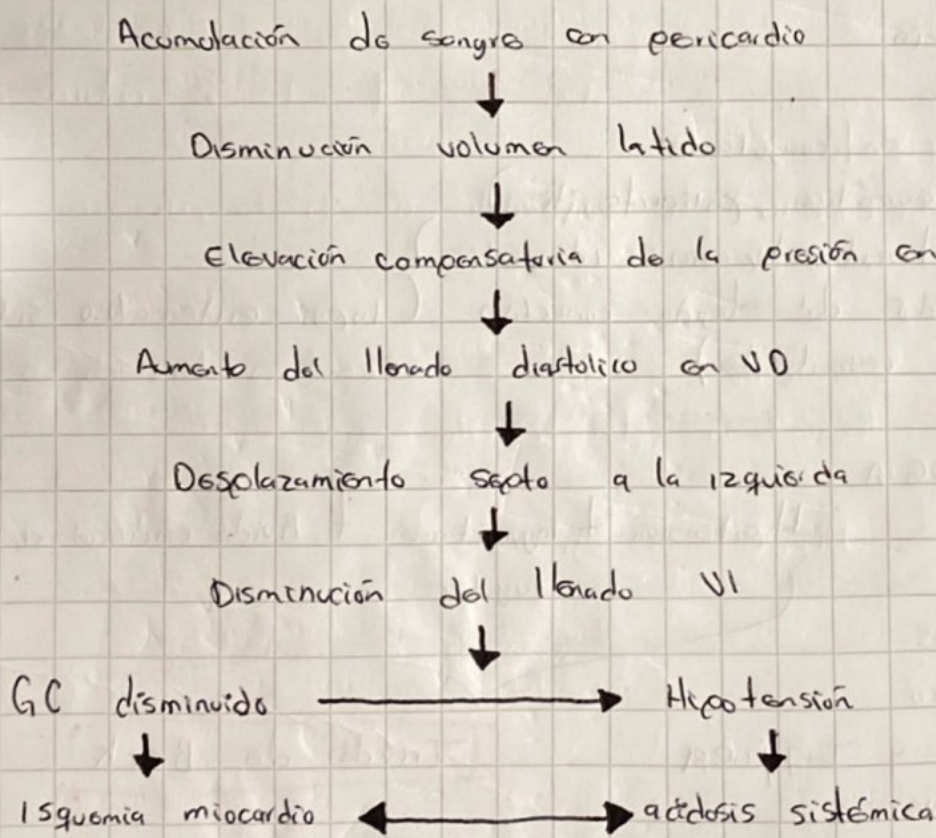 Acumulación de sangre en pericardio
Disminución volumen latido
Elevación compensatoria de la presión en
Aumento del llenado diastolico en VD
Desplazamiento septo a la izquierda
Disminución del llenado VI
GC disminuido Hipotensión
Isquemia miocardio acidosis sistémica